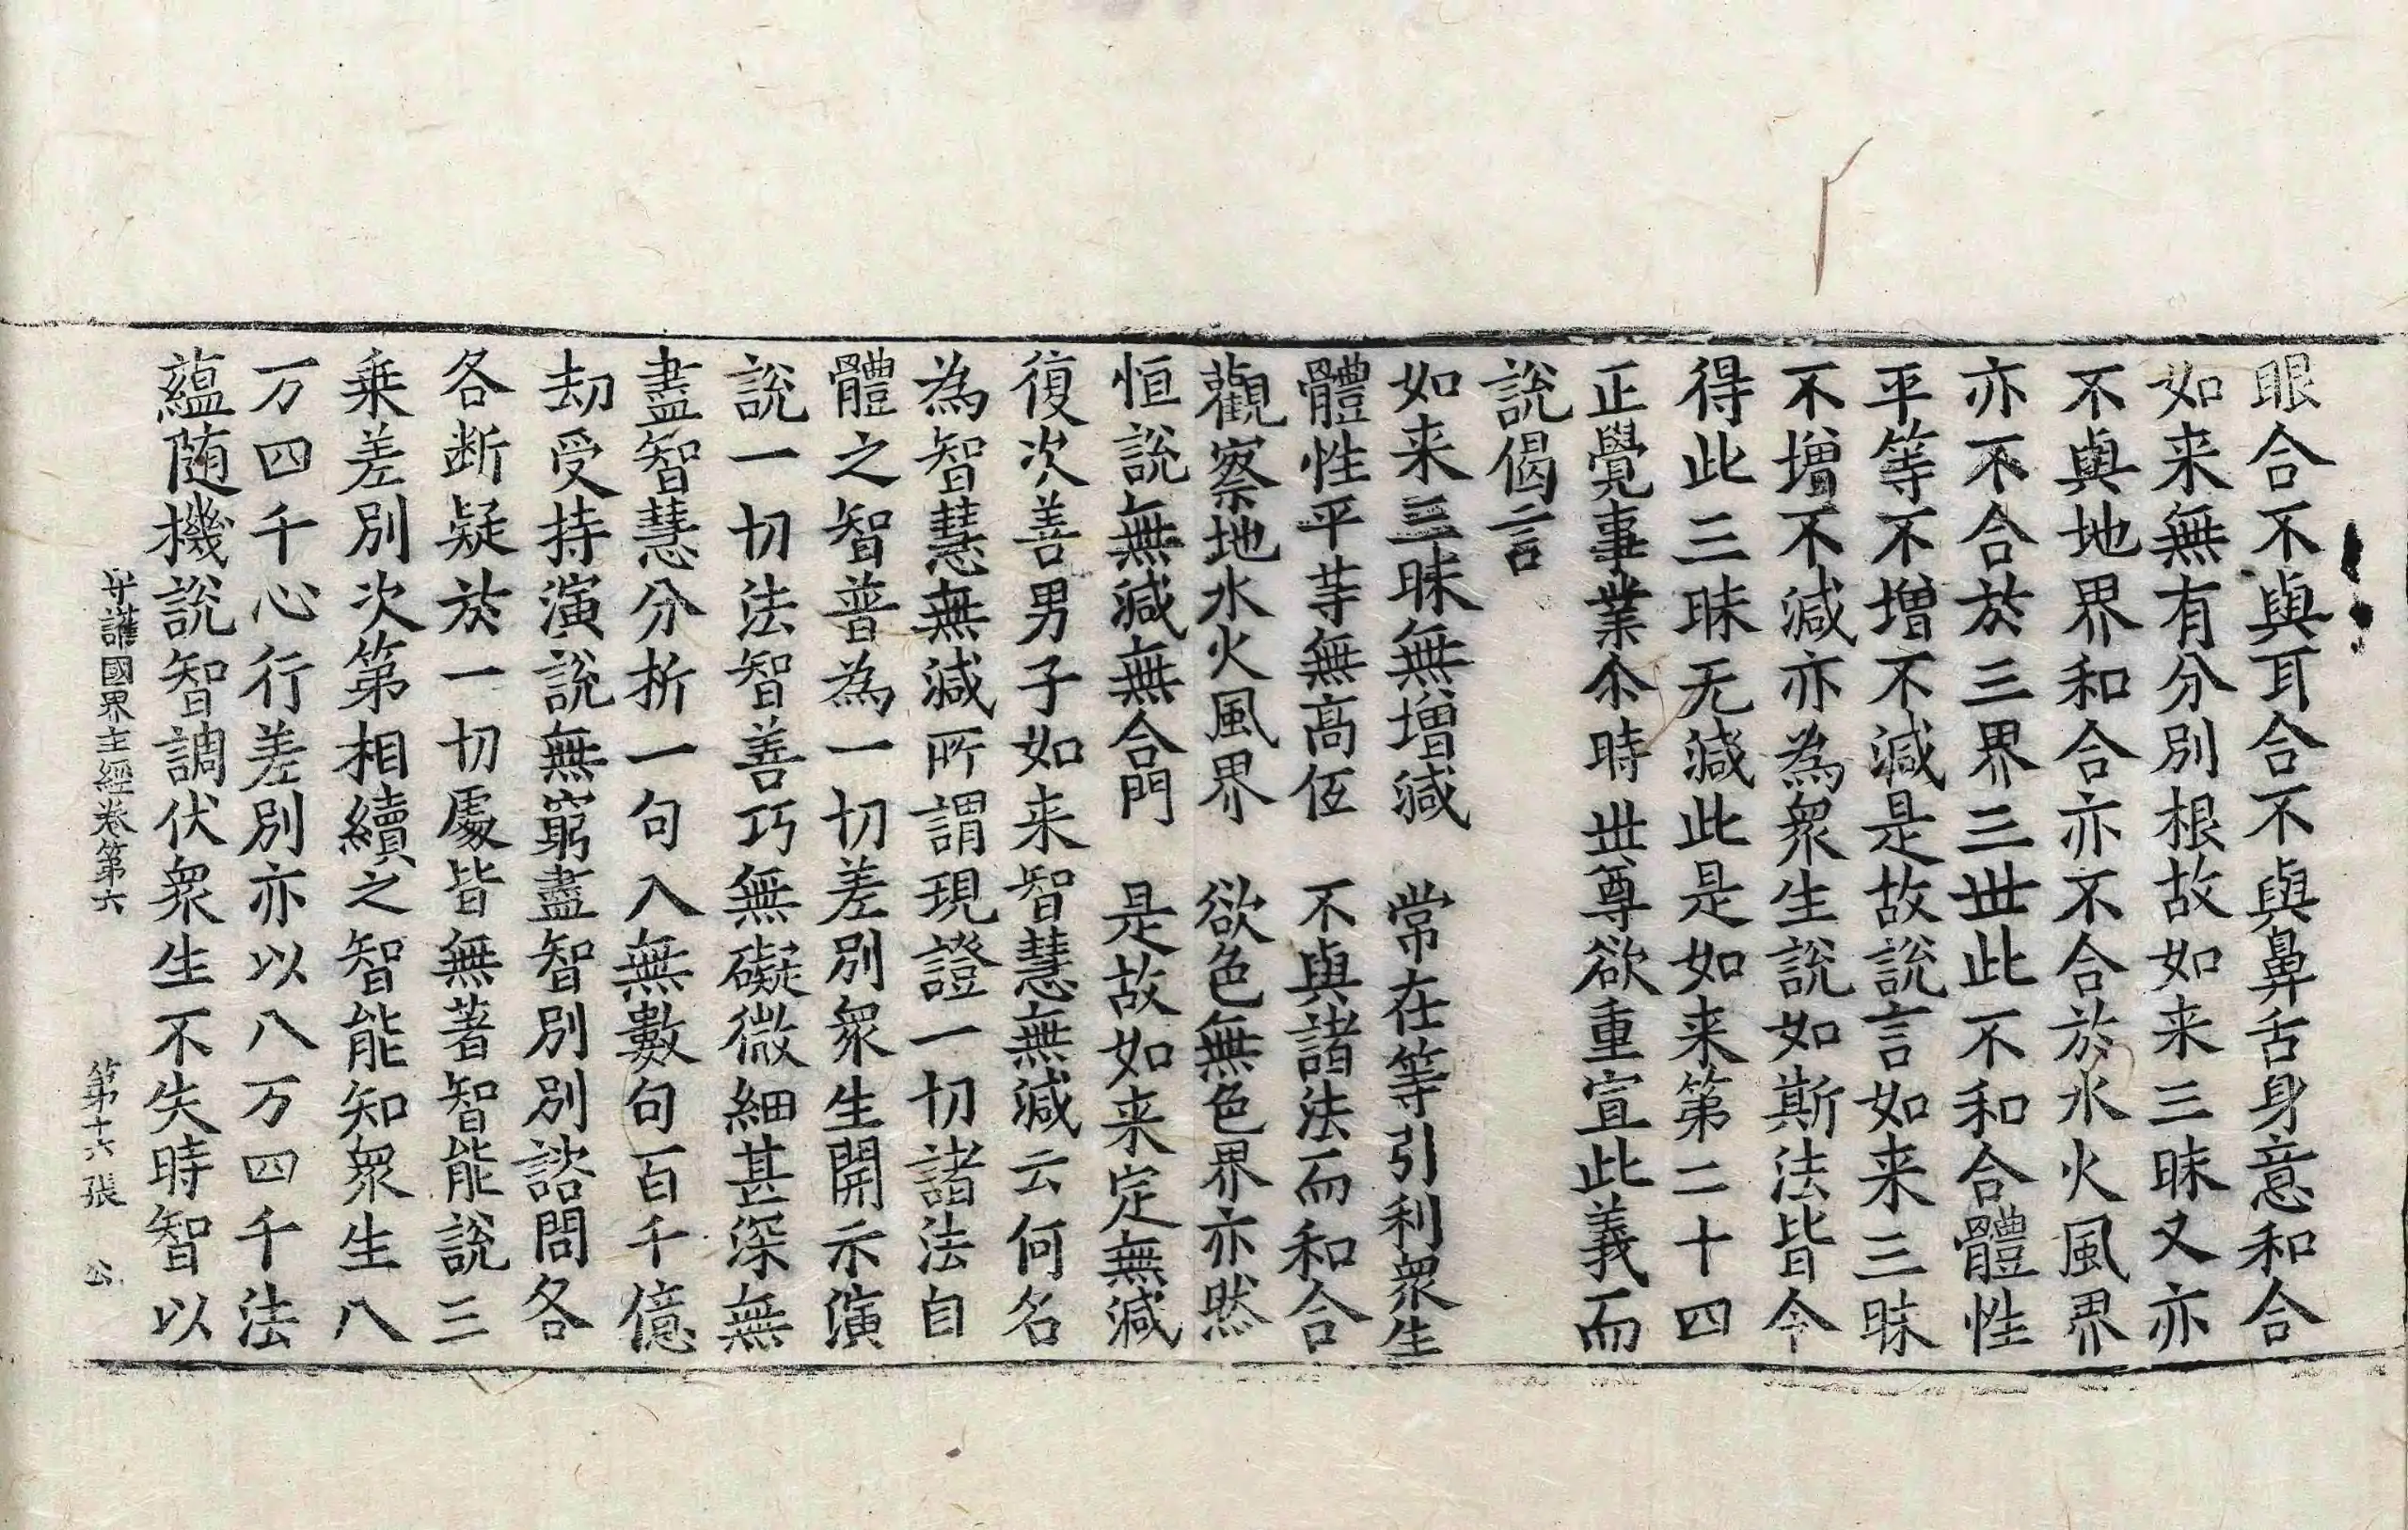 眼合不與耳合不與鼻舌身意和合
如来無有分別根故如来三昧又亦
不與地界和合亦不合於水火風界
亦不合於三界三世此不和合體性
平等不增不減是故說言如来三昧
不增不減亦為衆生說如斯法皆令
得此三昧无減此是如来第二十四
正覺事業尒時世尊欲重宣此義而
說偈言
如来三昧無增減　常在等引利衆生
體性平等無高低　不與諸法而和合
觀察地水火風界　欲色無色界亦然
恒說無減無合門　是故如来定無減
復次善男子如来智慧無減云何名
為智慧無減所謂現證一切諸法自
體之智普為一切差別衆生開示演
說一切法智善巧無礙微細甚深無
盡智慧分析一句入無數句百千億
劫受持演說無窮盡智別別諮問各
各断疑於一切處皆無著智能說三
乗差別次第相續之智能知衆生八
万四千心行差別亦以八万四千法
蘊随機說智調伏衆生不失時智以
守護國界主經卷第六　第十六張　公